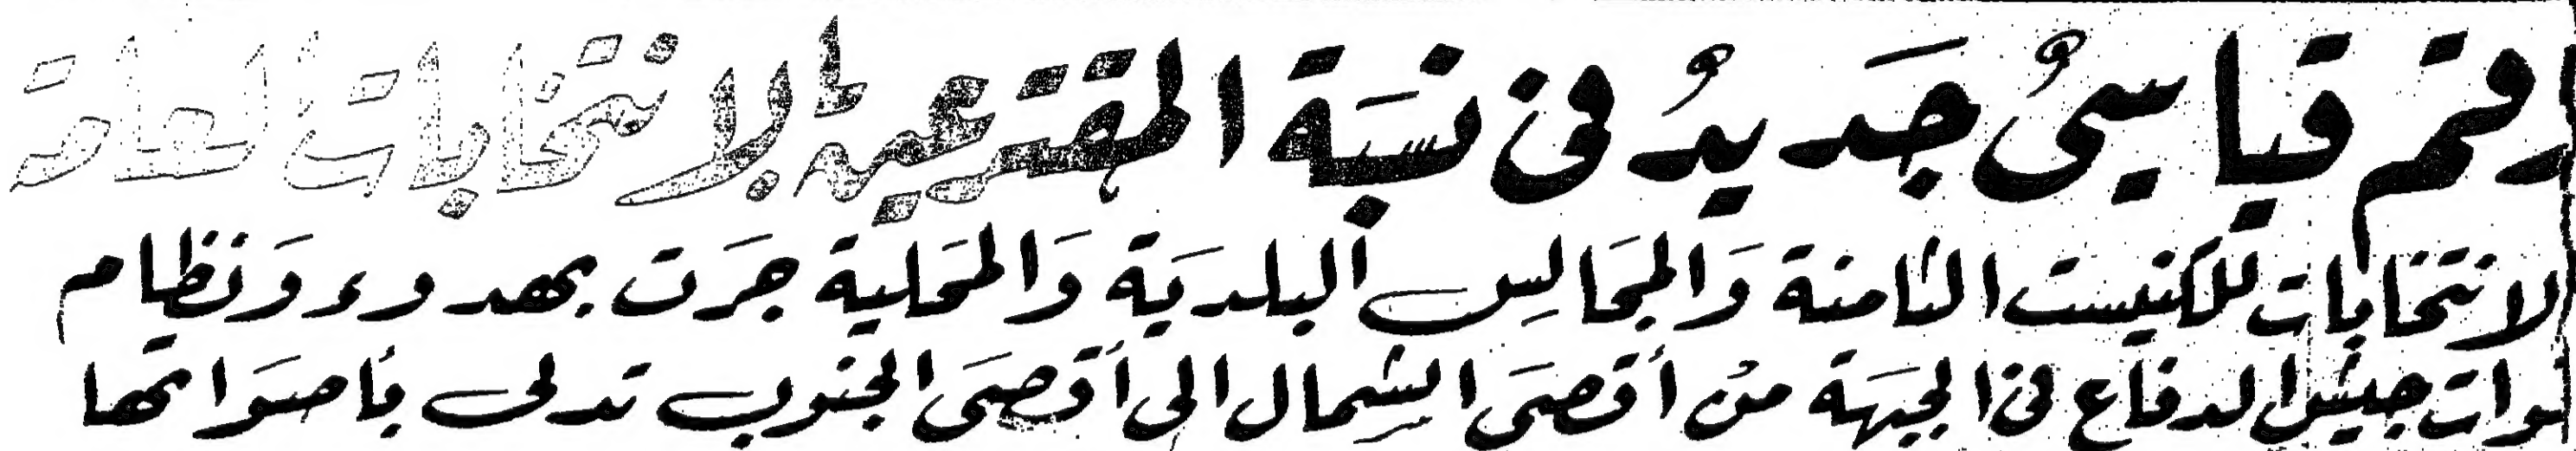 رقم قياسيٌ جَديدٌ في نسَبَة المقترعين للانتخابات العامة
الانتخابات للكنيست الثامنة وَالمجَالِس البلديَة وَالمحَلية جرَت بهدوء وَنظام
قوات جيش الدفاع في الجبهَة من أقصىَ الشمال الى أقصىَ الجنوب تدلى بأصوَاتها